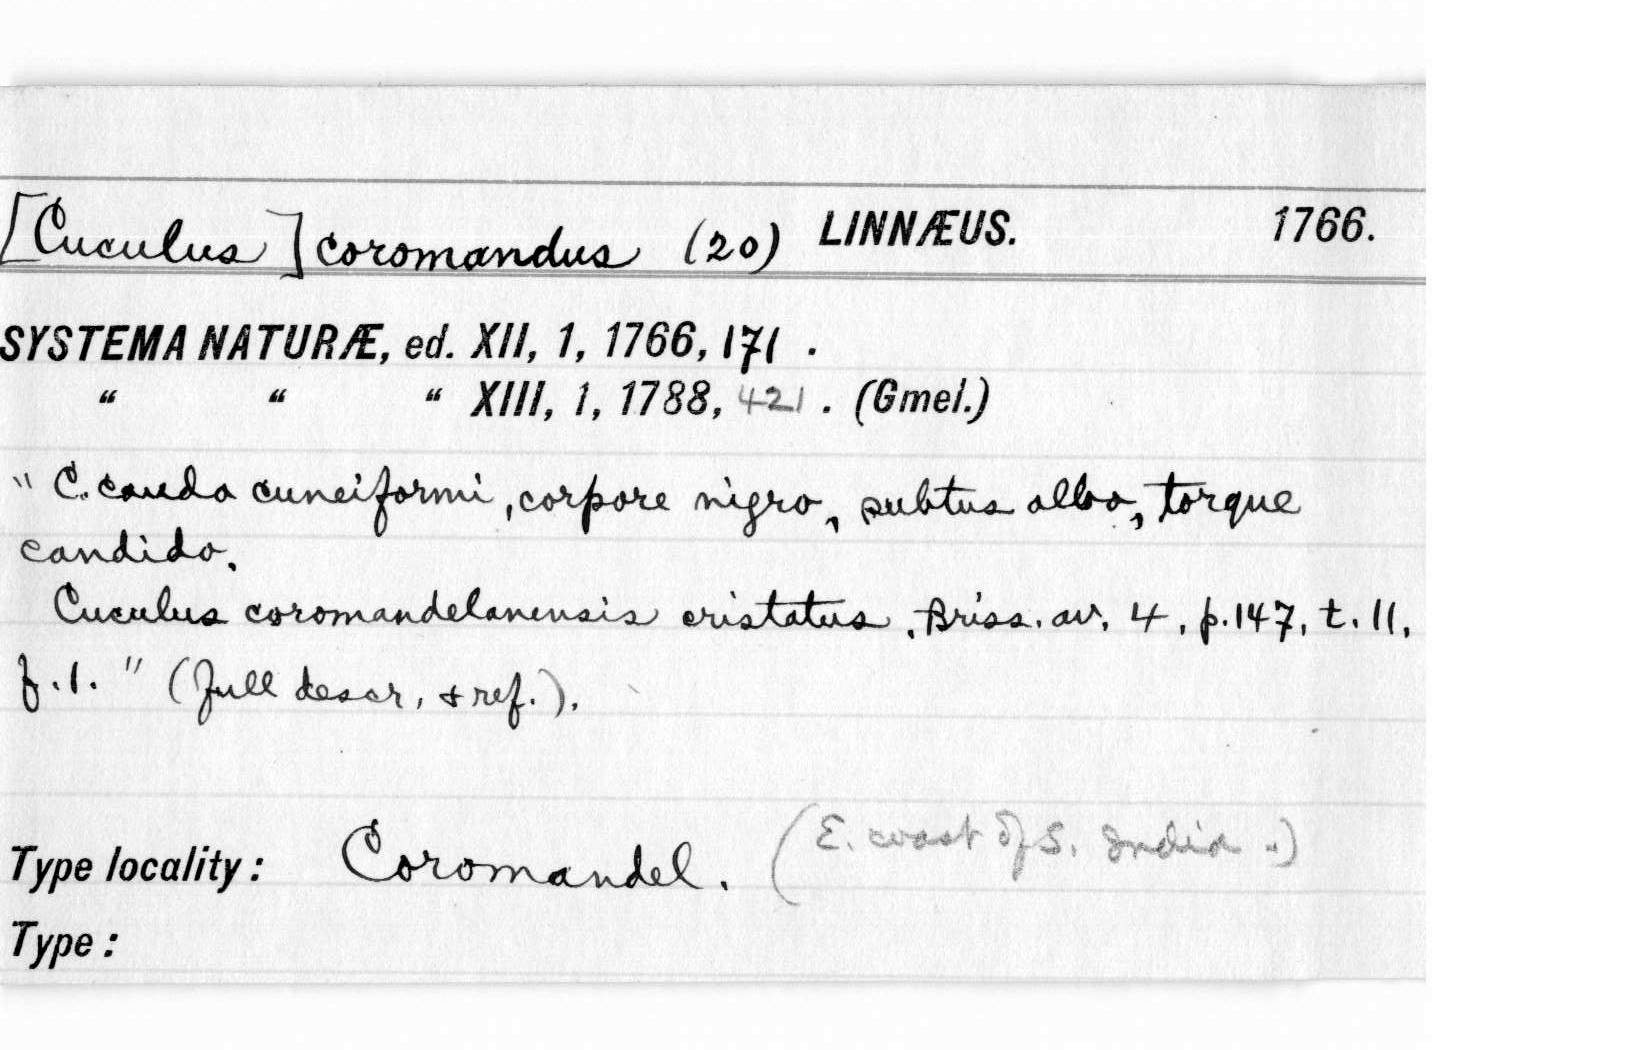 [Cuculus] coromandus (20) LINNÆUS. 1766.
SYSTEMA NATURÆ, ed. XII, 1, 1766, 171 .
“ “ “ XIII, 1, 1788, 421 . (Gmel.)
" C. cauda cuneiformi, corpore nigro, subtus albo, torque
candido.
Cuculus coromandelanensis cristatus. Briss. av. 4, p.147, t. 11,
f.1." (full descr. & ref.).
Type locality : Coromandel. (E. coast of S. India.)
Type :